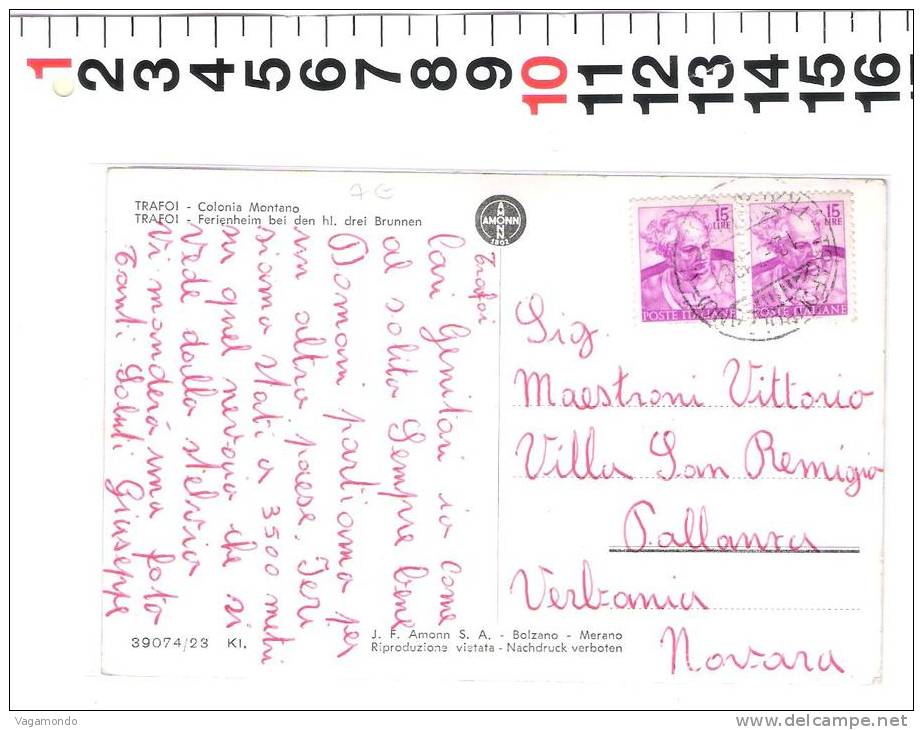 1 2 3 4 5 6 7 8 9 10 11 12 13 14 15 16
7 €
TRAFOI - Colonia Montano
TRAFOI - Ferienheim bei den hl. drei Brunnen
AMONN
AMONN
1802
15 LIRE
15 LIRE
POSTE ITALIANE
POSTE ITALIANE
Trafoi
Cari Genitori io come
al solito Sempre bene
Domani partiamo per
un altro paese. Ieri
siamo stati a 3500 metri
su quel nevaio che si
vede dallo stelvio
vi manderà una foto
Tanti Saluti Giuseppe
Sig.
Maestroni Vittorio
Villa San Remigio
Pallanza
Verbania
Novara
39074/23 Kl.
J. F. Amonn S. A. - Bolzano - Merano
Riproduzione vietata - Nachdruck verboten
Vagamondo
www.delcampe.net